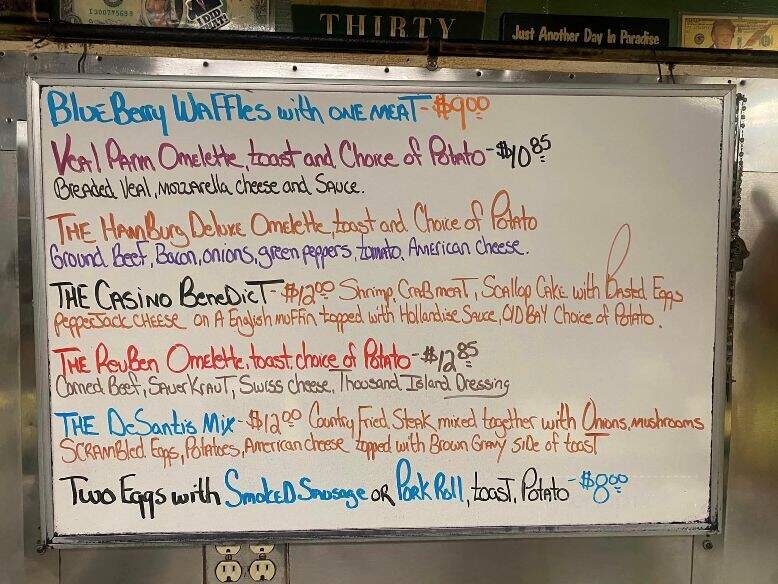 THIRTY
Just Another Day In Paradise
BlueBerry Waffles with ONE MEAT- $9.00
Veal Parm Omelette, toast and Choice of Potato - $10.85
Breaded Veal, mozzarella cheese and Sauce.
THE HamBurg Deluxe Omelette, toast and Choice of Potato
Ground Beef, Bacon, onions, green peppers, tomato, American cheese.
THE CASINO BeneDicT - $12.00 Shrimp, CraB meat, Scallop Cake with Basted Eggs
pepperJack CHEESE on A English muffin topped with Hollandise Sauce, Old BAY Choice of Potato.
THE ReuBen Omelette, toast, choice of Potato - $12.85
Corned Beef, SauerKrauT, Swiss cheese, Thousand Island Dressing
THE DeSantis Mix - $12.00 Country Fried Steak mixed together with Onions, mushrooms
SCRAMBled Eggs, Potatoes, American cheese topped with Brown Gravy side of toast
Two Eggs with SmokeD Sausage or Pork Roll, toast, Potato - $8.00